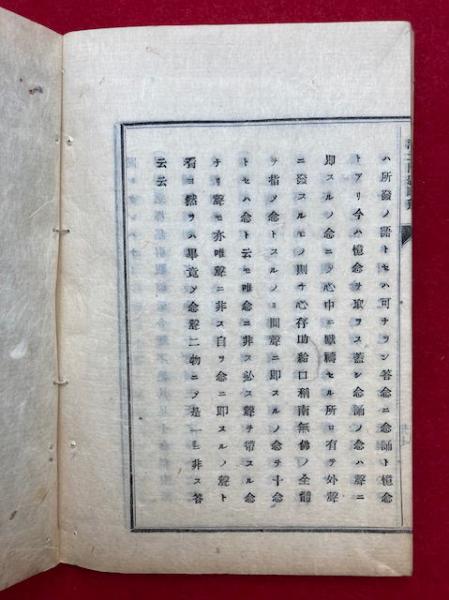 ハ所發ノ語トセハ可ナリン答念ニ念誦ト憶念
トアリ今ハ憶念ヲ取ラス蓋シ念誦ノ念ハ聲ニ
即スルノ念ニシテ心中ニ黙禱セル所ロ有ヲ外聲
ニ發スルモノ則チ心存助給口稱南無佛ノ全體
ヲ指ノ念トスルノミ聞聲ニ即スルノ念ヲ十念
トセハ念ト云モ唯念ニ非ス必ス聲ヲ帶スル念
ナリ聲モ亦唯聲ニ非ス自ラ念ニ即スルノ聲ト
獨ヨ然ラハ畢竟シテ念聲二物ニシテ是一ニ非ス答
云云